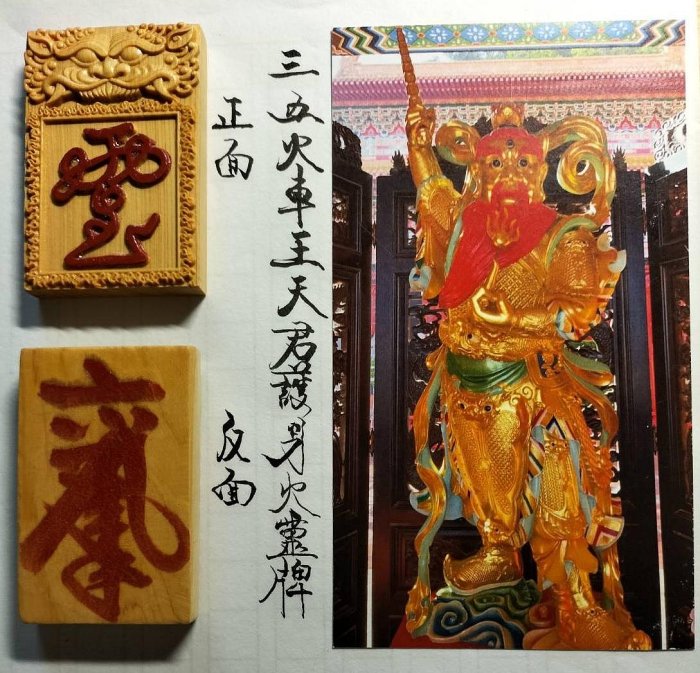 三五火車王天君護身火靈牌
正面
反面